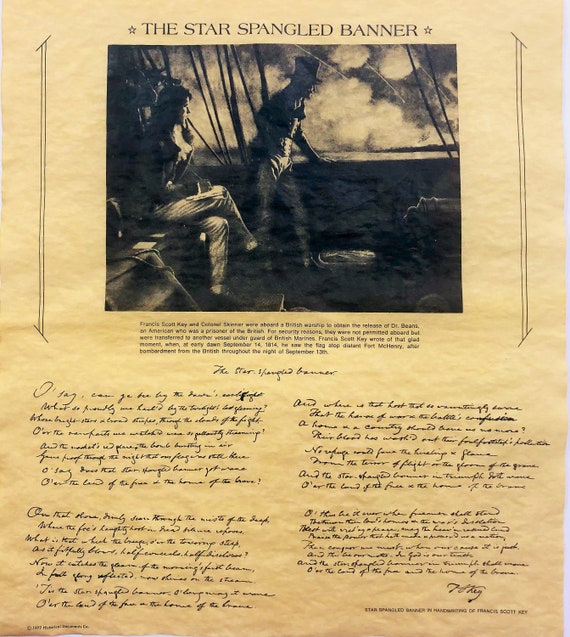 ☆ THE STAR SPANGLED BANNER ☆
Francis Scott Key and Colonel Skinner were aboard a British warship to obtain the release of Dr. Beans,
an American who was a prisoner of the British. For security reasons, they were not permitted aboard but
were transferred to another vessel under guard of British Marines. Francis Scott Key wrote of that glad
moment, when, at early dawn September 14, 1814, he saw the flag atop distant Fort McHenry, after
bombardment from the British throughout the night of September 13th.
The Star-spangled banner
O! say, can ye see by the dawn's
What so proudly we hail'd by the twilight's last gleaming?
Whose bright stars & broad stripes, through the clouds of the fight
O'er the ramparts we watch'd were so gallantly streaming?
And the rocket's red glare, the bomb bursting in air
Gave proof through the night that our flag was still there
O! say, does that star-spangled banner yet wave
O'er the land of the free & the home of the brave?
On that shore, dimly seen through the mists of the deep,
Where the foe's haughty host in dread silence reposes,
What is that which the breeze, o'er the towering steep,
As it fitfully blows, half conceals, half discloses?
Now it catches the gleam of the morning's first beam,
In full glory reflected, now shines on the stream
'Tis the star-spangled banner, O! long may it wave
O'er the land of the free & the home of the brave
And where is that host that so vauntingly swore
That the havoc of war & the battle's confusion
A home & a Country should leave us no more?
Their blood has wash'd out their foul footstep's pollution
No refuge could save the hireling & slave
From the terror of flight or the gloom of the grave
And the star-spangled banner in triumph doth wave
O'er the land of the free & the home of the brave
O! thus be it ever when freemen shall stand
Between their lov'd home & the war's desolation
Blest with vict'ry & peace may the heav'n rescued land
Praise the power that hath made & preserv'd us a nation
Then conquer we must, when our cause it is just,
And this be our motto – In God is our trust
And the star-spangled banner in triumph shall wave
O'er the land of the free and the home of the brave
F S Key
STAR SPANGLED BANNER IN HANDWRITING OF FRANCIS SCOTT KEY
© 1977 Historical Documents Co.